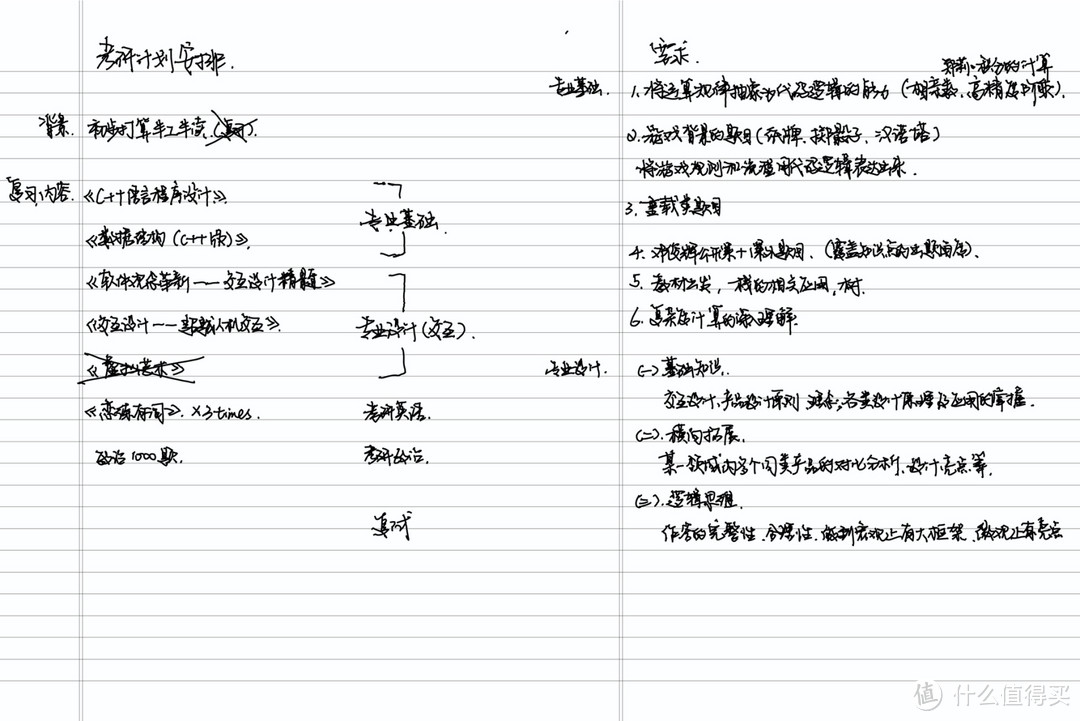 考研计划安排.
背景. 初步打算半工半读.(复习).
复习内容. 《C++语言程序设计》.
《数据结构(C++版)》.
专业基础.
《软件观念革新——交互设计精髓》
《交互设计——超越人机交互》.
专业设计(交互).
《虚拟艺术》
《恋练有词》. ×3times. 考研英语.
政治1000题. 考研政治.
复试
要求.
郑莉:积分的计算
专业基础. 1. 将运算规律抽象为代码逻辑的能力(相亲数、高精度阶乘).
2. 游戏背景的题目(纸牌、掷骰子、汉诺塔)
将游戏规则和流程用代码逻辑表达出来.
3. 重载类题目
4. 邓俊辉公开课+课外题目.(覆盖知识点的出题内容).
5. 教材出发,一栈的相关应用,树.
6. 复杂度计算的深入理解.
专业设计. (一)基础知识.
交互设计、产品设计原则、理念,各类设计原理及应用的掌握.
(二). 横向拓展.
某一领域内各个同类产品的对比分析、设计亮点等.
(三). 逻辑思维.
作答的完整性、合理性. 做到宏观上有大框架、微观上有亮点
值 什么值得买